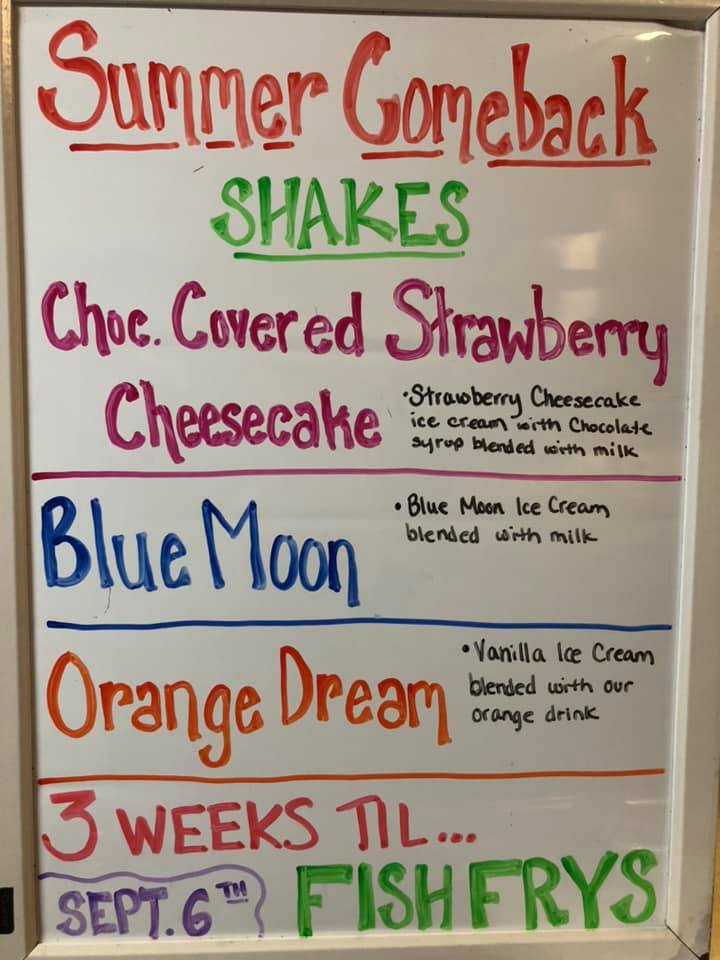 Summer Comeback
SHAKES
Choc. Covered Strawberry
Cheesecake
•Strawberry Cheesecake
ice cream with Chocolate
syrup blended with milk
Blue Moon
•Blue Moon Ice Cream
blended with milk
Orange Dream
•Vanilla Ice Cream
blended with our
orange drink
3 WEEKS TIL...
SEPT. 6TH FISH FRYS